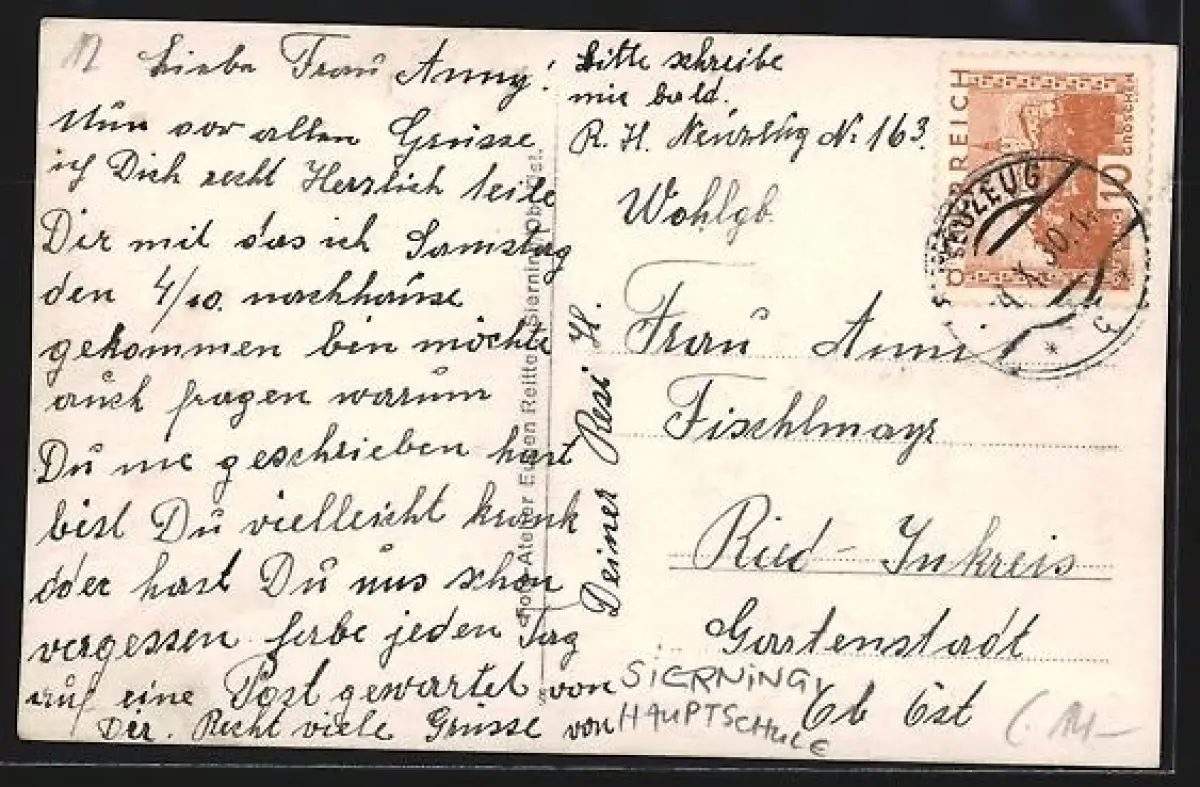 12
Liebe Frau Anny!
Nun vor allen Grüsse
ich Dich recht Herzlich teile
Dir mit das ich Samstag
den 4/10. nachhause
gekommen bin möchte
auch fragen warum
Du nie geschrieben hast
bist Du vielleicht krank
oder hast Du uns schon
vergessen habe jeden Tag
auf eine Post gewartet von
Dir. Recht viele Grüsse von
Deiner Resi H.
Bitte schreibe
mir bald.
R. H. Neuzeug No 163.
Foto-Atelier Eugen Reitter, Sierning, Ob.-Öst.
ÖSTERREICH
10
GROSCHEN
NEUZEUG
X. 30. 14
Wohlgb.
Frau Anni
Fischlmayr
Ried - Inkreis
Gartenstadt
Ob Öst
SIERNING,
HAUPTSCHULE